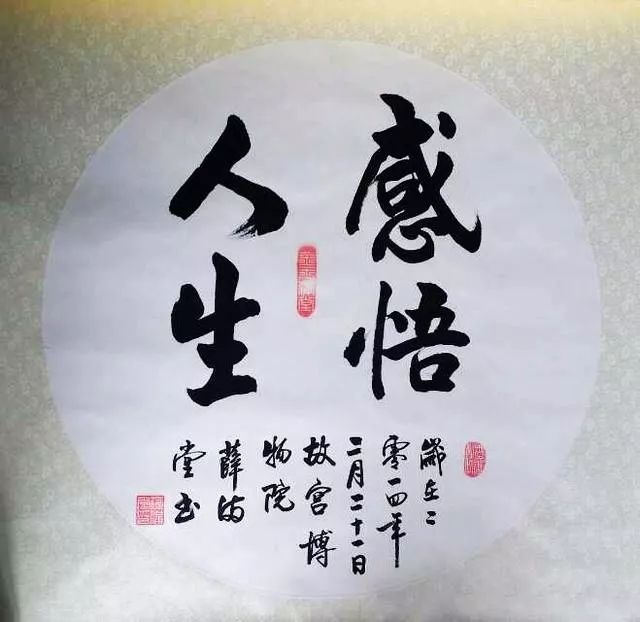 感悟
人生
歲在二
零一四年
二月二十一日
故宫博
物院
薛满
堂书